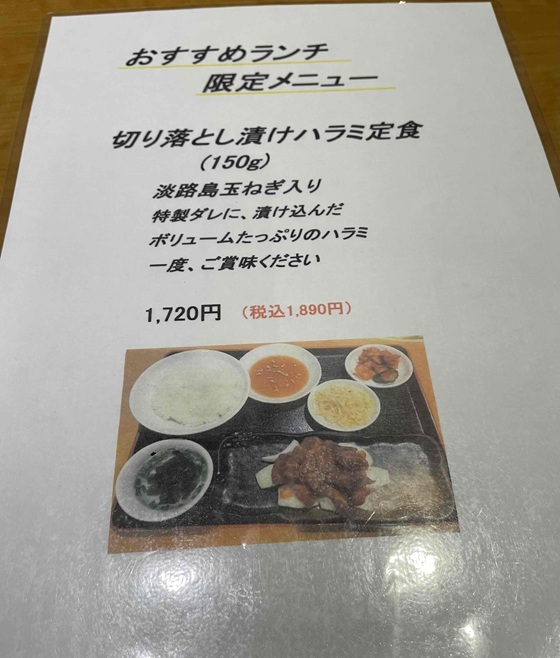 おすすめランチ
限定メニュー
切り落とし漬けハラミ定食
(150g)
淡路島玉ねぎ入り
特製ダレに、漬け込んだ
ボリュームたっぷりのハラミ
一度、ご賞味ください
1,720円 (税込1,890円)